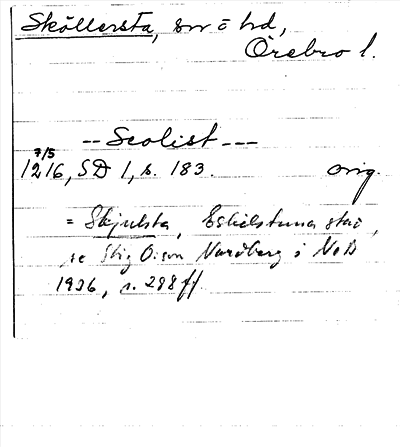 Sköllersta, sn o hd,
Örebro l.
-- Scolist ---
7/5
1216, SD 1, s. 183. orig.
= Skjulsta, Eskilstuna stad,
se Stig Olson Nordberg i NoB
1936, s. 298 ff.